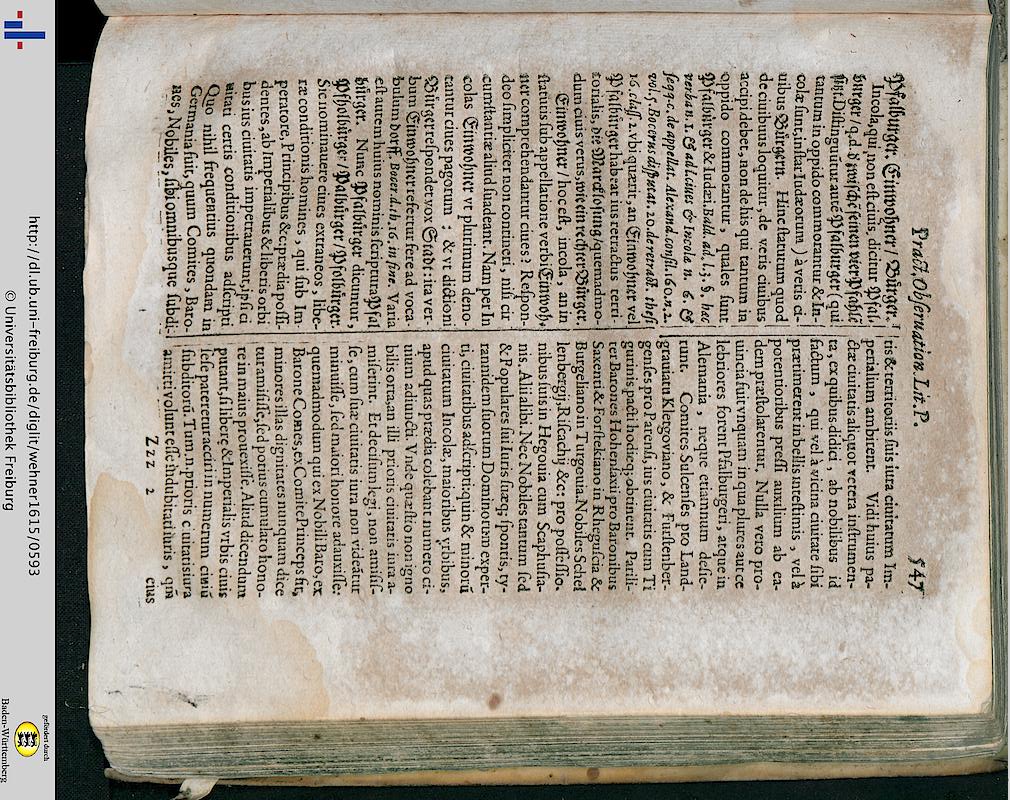 Pract. Observation. Lit. P. 547
Pfalburger. Einwohner / Bürger.
Incola, qui non est ciuis, dicitur Pfal-
burger / q. d. d' zwischē seinen vier Pfähle
sitzt. Distinguitur autē Pfalburger (qui
tantum in oppido commorantur & In-
colæ sunt, instar Iudæorum) à veris ci-
uibus Bürgern. Hinc statutum quod
de ciuibus loquitur, de veris ciuibus
accipi debet, non de his qui tantum in
oppido commorantur, quales sunt
Pfalbürger & Iudæi. Bald. ad. l. 3. §. hæc
verba. n. 1. & ad l. ciues & incola n. 6. &
seqq. c. de appellat. Alexand. consil. 60. n. 2.
vol. 5. Bocerus disputat. 20. de retract. thesi
16. class. 2. vbi quærit, an Einwohner vel
Pfalbürger habeat ius retractus terri-
torialis, die Marcklosung / quemadmo-
dum ciuis verus, wie ein rechter Bürger.
Einwohner / hoc est, incola, an in
statutis sub appellatione verbi Einwoh-
ner comprehendantur ciues? Respon-
deo simpliciter non contineri, nisi cir
cumstantiæ aliud suadeant. Nam per In
colas Einwohner vt plurimum deno-
tantur ciues pagorum: & vt dictioni
Bürger respondet vox Stadt: ita ver-
bum Einwohner refertur fere ad voca-
bulum dorff. Bocer. d. th. 16. in fine. Varia
est autem huius nominis scriptura Pfal
bürger. Nunc Pfalbürger dicuntur,
Pfholbürger / Palbürger / Pfolbürger.
Sic nominauere ciues extraneos, libe-
ræ conditionis homines, qui sub Im-
peratore, Principibus & c. prædia possi-
dentes, ab Imperialibus & liberis orbi
bus ius ciuitatis impetrauerunt, ipsi ci
uitati certis conditionibus adscripti
Quo nihil frequentius quondam in
Germania fuit, quum Comites, Baro-
nes, Nobiles, sibi omnibusque subdi-
tis & territoriis suis iura ciuitatum Im-
perialium ambirent. Vidi huius pa-
ctæ ciuitatis aliquot vetera instrumen-
ta, ex quibus didici, ab nobilibus id
factum, qui vel à vicina ciuitate sibi
prætimerent in bellis intestinis, vel à
potentioribus pressi auxilium ab ea-
dem præstolarentur, Nulla vero pro-
uincia fuit vnquam in qua plures ac ce
lebriores forent Pfalburgeri, atque in
Alemania, neque etiamnum desie-
runt. Comites Sulcenses pro Land-
grauiatu Klergoviano, & Furstenber-
genses pro Parensi, ius ciuitatis cum Ti
gurinis pacti hodieq; obtinent. Parili-
ter Barones Hohensaxij pro Baronibus
Saxenti & Forsteckiano in Rheguscia &
Burgeliano in Turgouia, Nobiles Schel
lenbergij, Riscachij & c: pro possessio-
nibus suis in Hegouia cum Scaphusia-
nis, Alij alibi. Nec Nobiles tantum sed
& Populares sui Iuris suæq; spontis, ty-
rannidem suorum Dominorum exper-
ti, ciuitatibus adscripti: quin & minorū
ciuitatum Incolæ, maioribus vrbibus,
apud quas præda colebant numero ci-
uium adiuncti. Vnde quæstio non igno
bilis orta, an illi prioris ciuitatis iura a-
miserint. Et decisum legi, non amisis-
se, cum suæ ciuitatis iura non videātur
minuisse, sed maiori honore adauxisse:
quemadmodum qui ex Nobili Baro, ex
Barone Comes, ex Comite Princeps fit,
minores illas dignitates nunquam dice
tur amisisse, sed potius cumulato hono-
re in maius prouexisse. Aliud dicendum
putant, si liberæ & Imperialis vrbis ciuis
sese pateretur accirí in numerum ciuiū
subditorū. Tum. n. prioris ciuitatis iura
amitti volunt esse indubitati iuris, quū
Zzz 2 cius
http://dl.ub.uni-freiburg.de/diglit/wehner1615/0593
© Universitätsbibliothek Freiburg
gefördert durch
Baden-Württemberg